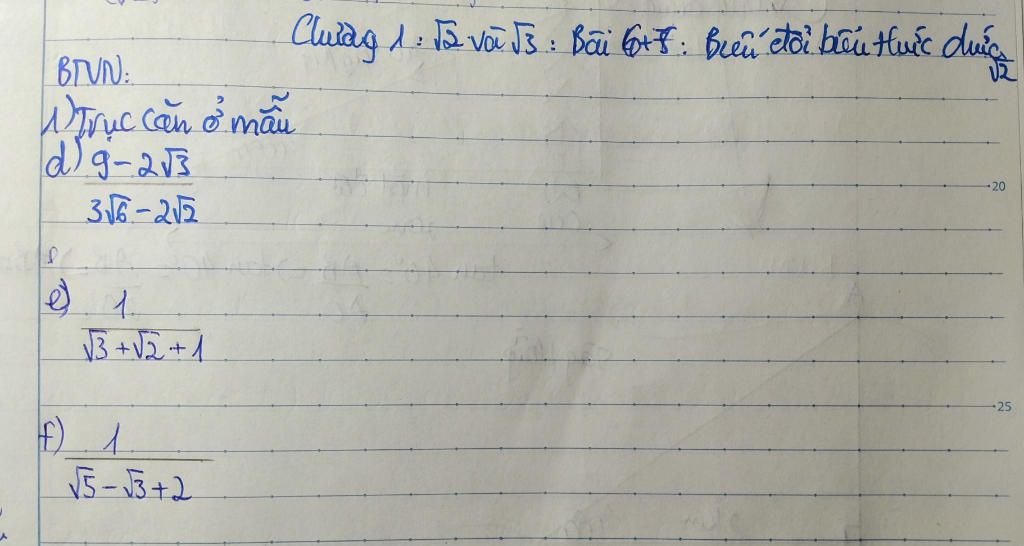 Chương 1: √2 và √3: Bài 6+7: Biến đổi biểu thức chứa √2
BTVN:
1) Trục căn ở mẫu
d) 9 - 2√3
20
3√6 - 2√2
e) 1
√3 + √2 + 1
25
f) 1
√5 - √3 + 2